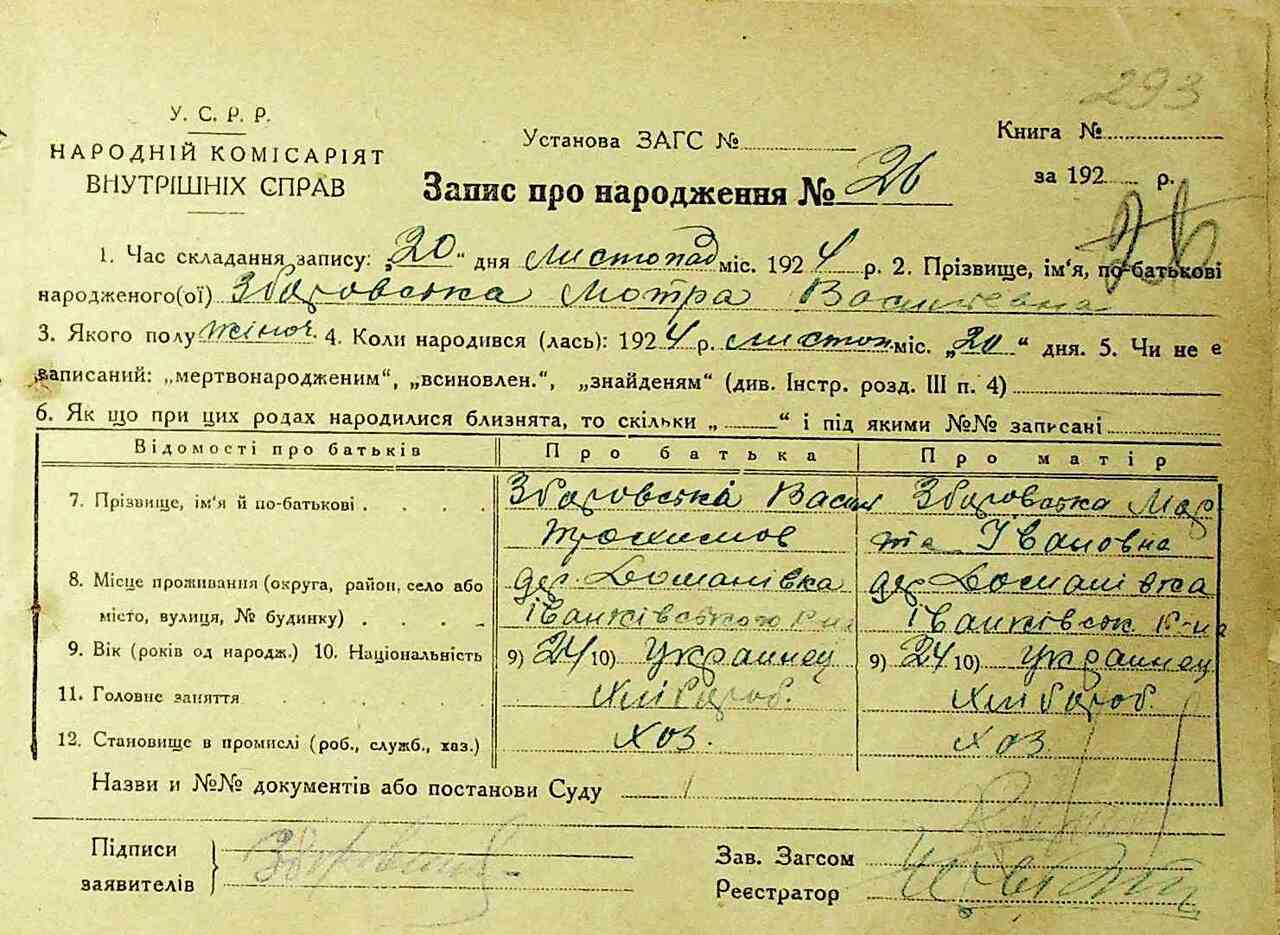 293
У. С. Р. Р.
НАРОДНІЙ КОМІСАРІЯТ
ВНУТРІШНІХ СПРАВ
Установа ЗАГС №
Книга №
за 192 р.
Запис про народження № 26
26
1. Час складання запису: „20“ дня листопад міс. 1924 р. 2. Прізвище, ім'я, по-батькові
народженого(ої) Зборовська Мотра Василевна
3. Якого полу жіноч. 4. Коли народився (лась): 1924 р. листоп. міс. „20“ дня. 5. Чи не є
записаний: „мертвонародженим“, „всиновлен.“, „знайденям“ (див. Інстр. розд. III п. 4)
6. Як що при цих родах народилися близнята, то скільки „ “ і під якими №№ записані
Відомості про батьків Про батька Про матір
7. Прізвище, ім'я й по-батькові . . . . Зборовські Васил Зборовська Мар
Трохимов та Івановна
8. Місце проживання (округа, район, село або дер. Доманівка дер. Доманівка
місто, вулиця, № будинку) . . . . Іванківського р-на Іванківськ. р-на
9. Вік (років од народж.) 10. Національність 9) 24 10) Украинец 9) 24 10) Украинец
11. Головне заняття . . . . . Хлібороб. Хлібороб.
12. Становище в промислі (роб., служб., хаз.) хоз. хоз
Назви и №№ документів або постанови Суду
Підписи
заявителів
Зав. Загсом
Реєстратор